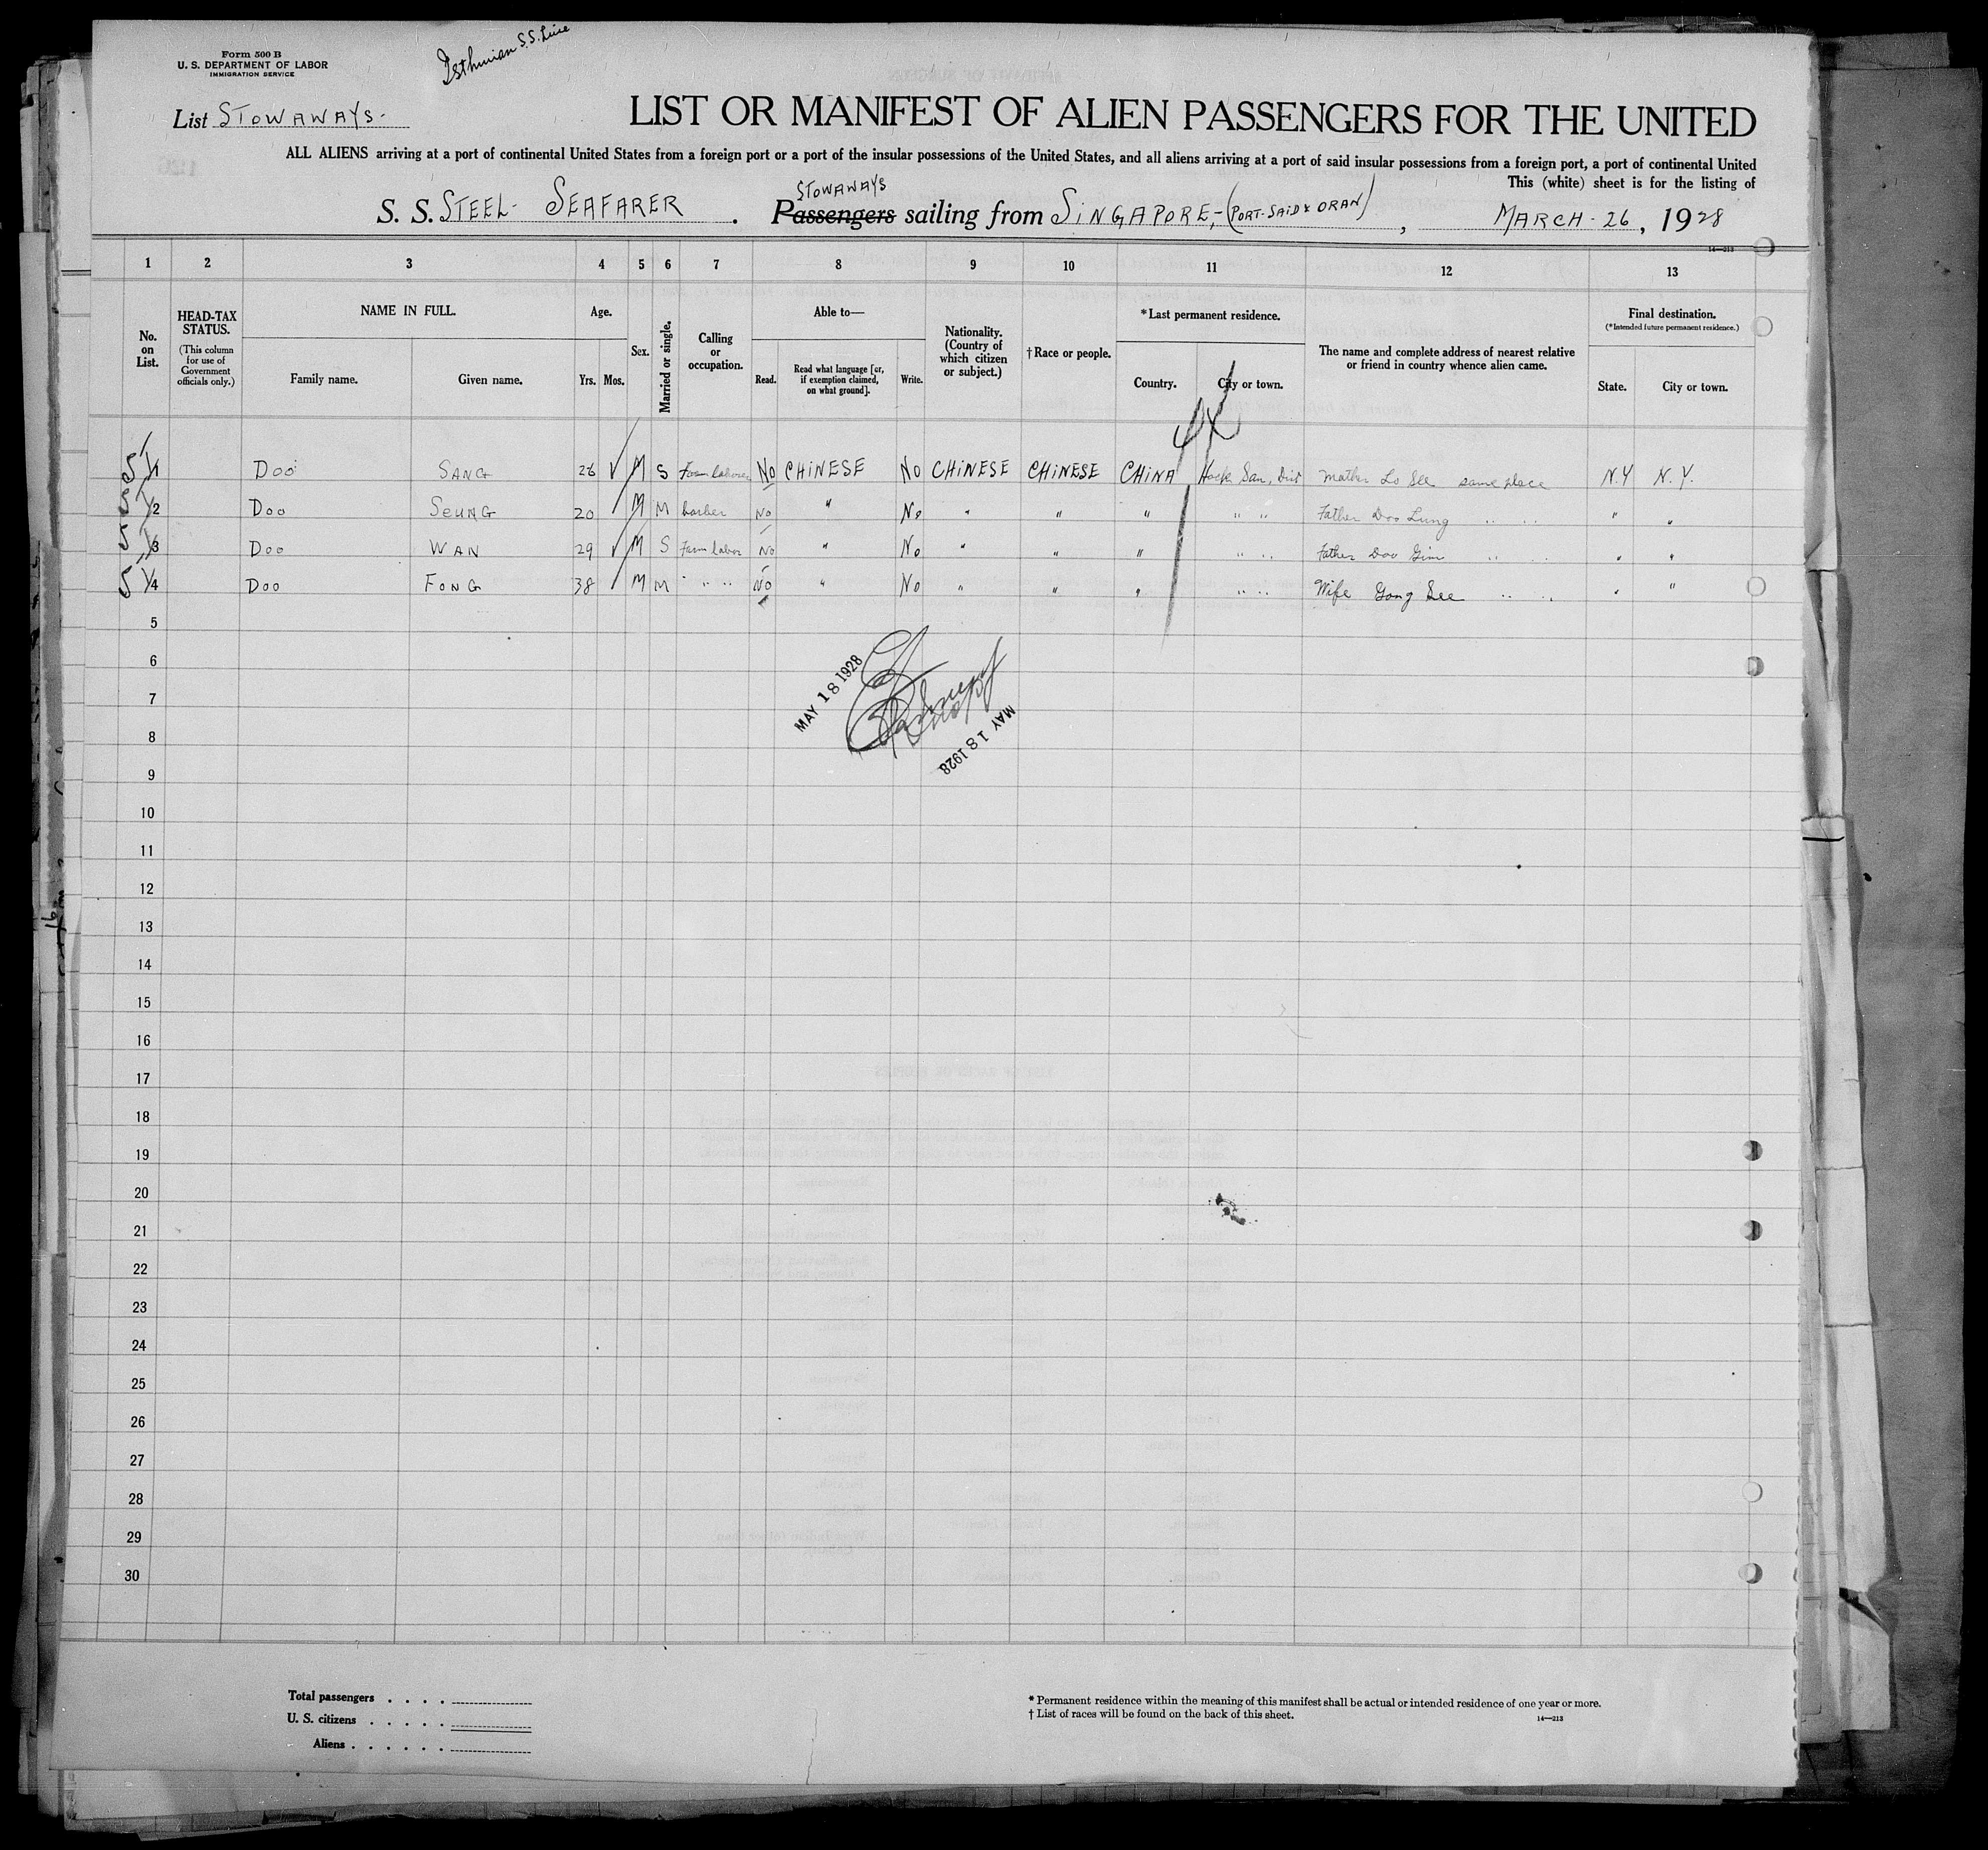 Form 500 B
U. S. DEPARTMENT OF LABOR
IMMIGRATION SERVICE
Isthmian S.S. Line
List STOWAWAYS-
LIST OR MANIFEST OF ALIEN PASSENGERS FOR THE UNITED
ALL ALIENS arriving at a port of continental United States from a foreign port or a port of the insular possessions of the United States, and all aliens arriving at a port of said insular possessions from a foreign port, a port of continental United
This (white) sheet is for the listing of
STOWAWAYS
S. S. STEEL- SEAFARER. Passengers sailing from SINGAPORE,-(PORT-SAID & ORAN), MARCH-26, 1928
14—213
1 2 3 4 5 6 7 8 9 10 11 12 13
No. on List.
HEAD-TAX STATUS.
(This column for use of Government officials only.)
NAME IN FULL.
Family name. Given name.
Age.
Yrs. Mos.
Sex.
Married or single.
Calling or occupation.
Able to—
Read. Read what language [or, if exemption claimed, on what ground]. Write.
Nationality. (Country of which citizen or subject.)
†Race or people.
*Last permanent residence.
Country. City or town.
The name and complete address of nearest relative or friend in country whence alien came.
Final destination.
(*Intended future permanent residence.)
State. City or town.
1 Doo SANG 26 M S Farm laborer No CHINESE No CHINESE CHINESE CHINA San, Dist Mother Lo See same place N.Y N.Y.
2 Doo SEUNG 20 M M barber No " No " " " " " Father Doo Lung " " " "
3 Doo WAN 29 M S Farm labor No " No " " " " " Father Doo Gim " " " "
4 Doo FONG 38 M M " " " No " No " " " " " Wife Gong See " " " "
5
6
MAY 18 1928
7
MAY 18 1928
8
9
10
11
12
13
14
15
16
17
18
19
20
21
22
23
24
25
26
27
28
29
30
Total passengers . . . .
U. S. citizens . . . . .
Aliens . . . . . .
* Permanent residence within the meaning of this manifest shall be actual or intended residence of one year or more.
† List of races will be found on the back of this sheet.
14—213